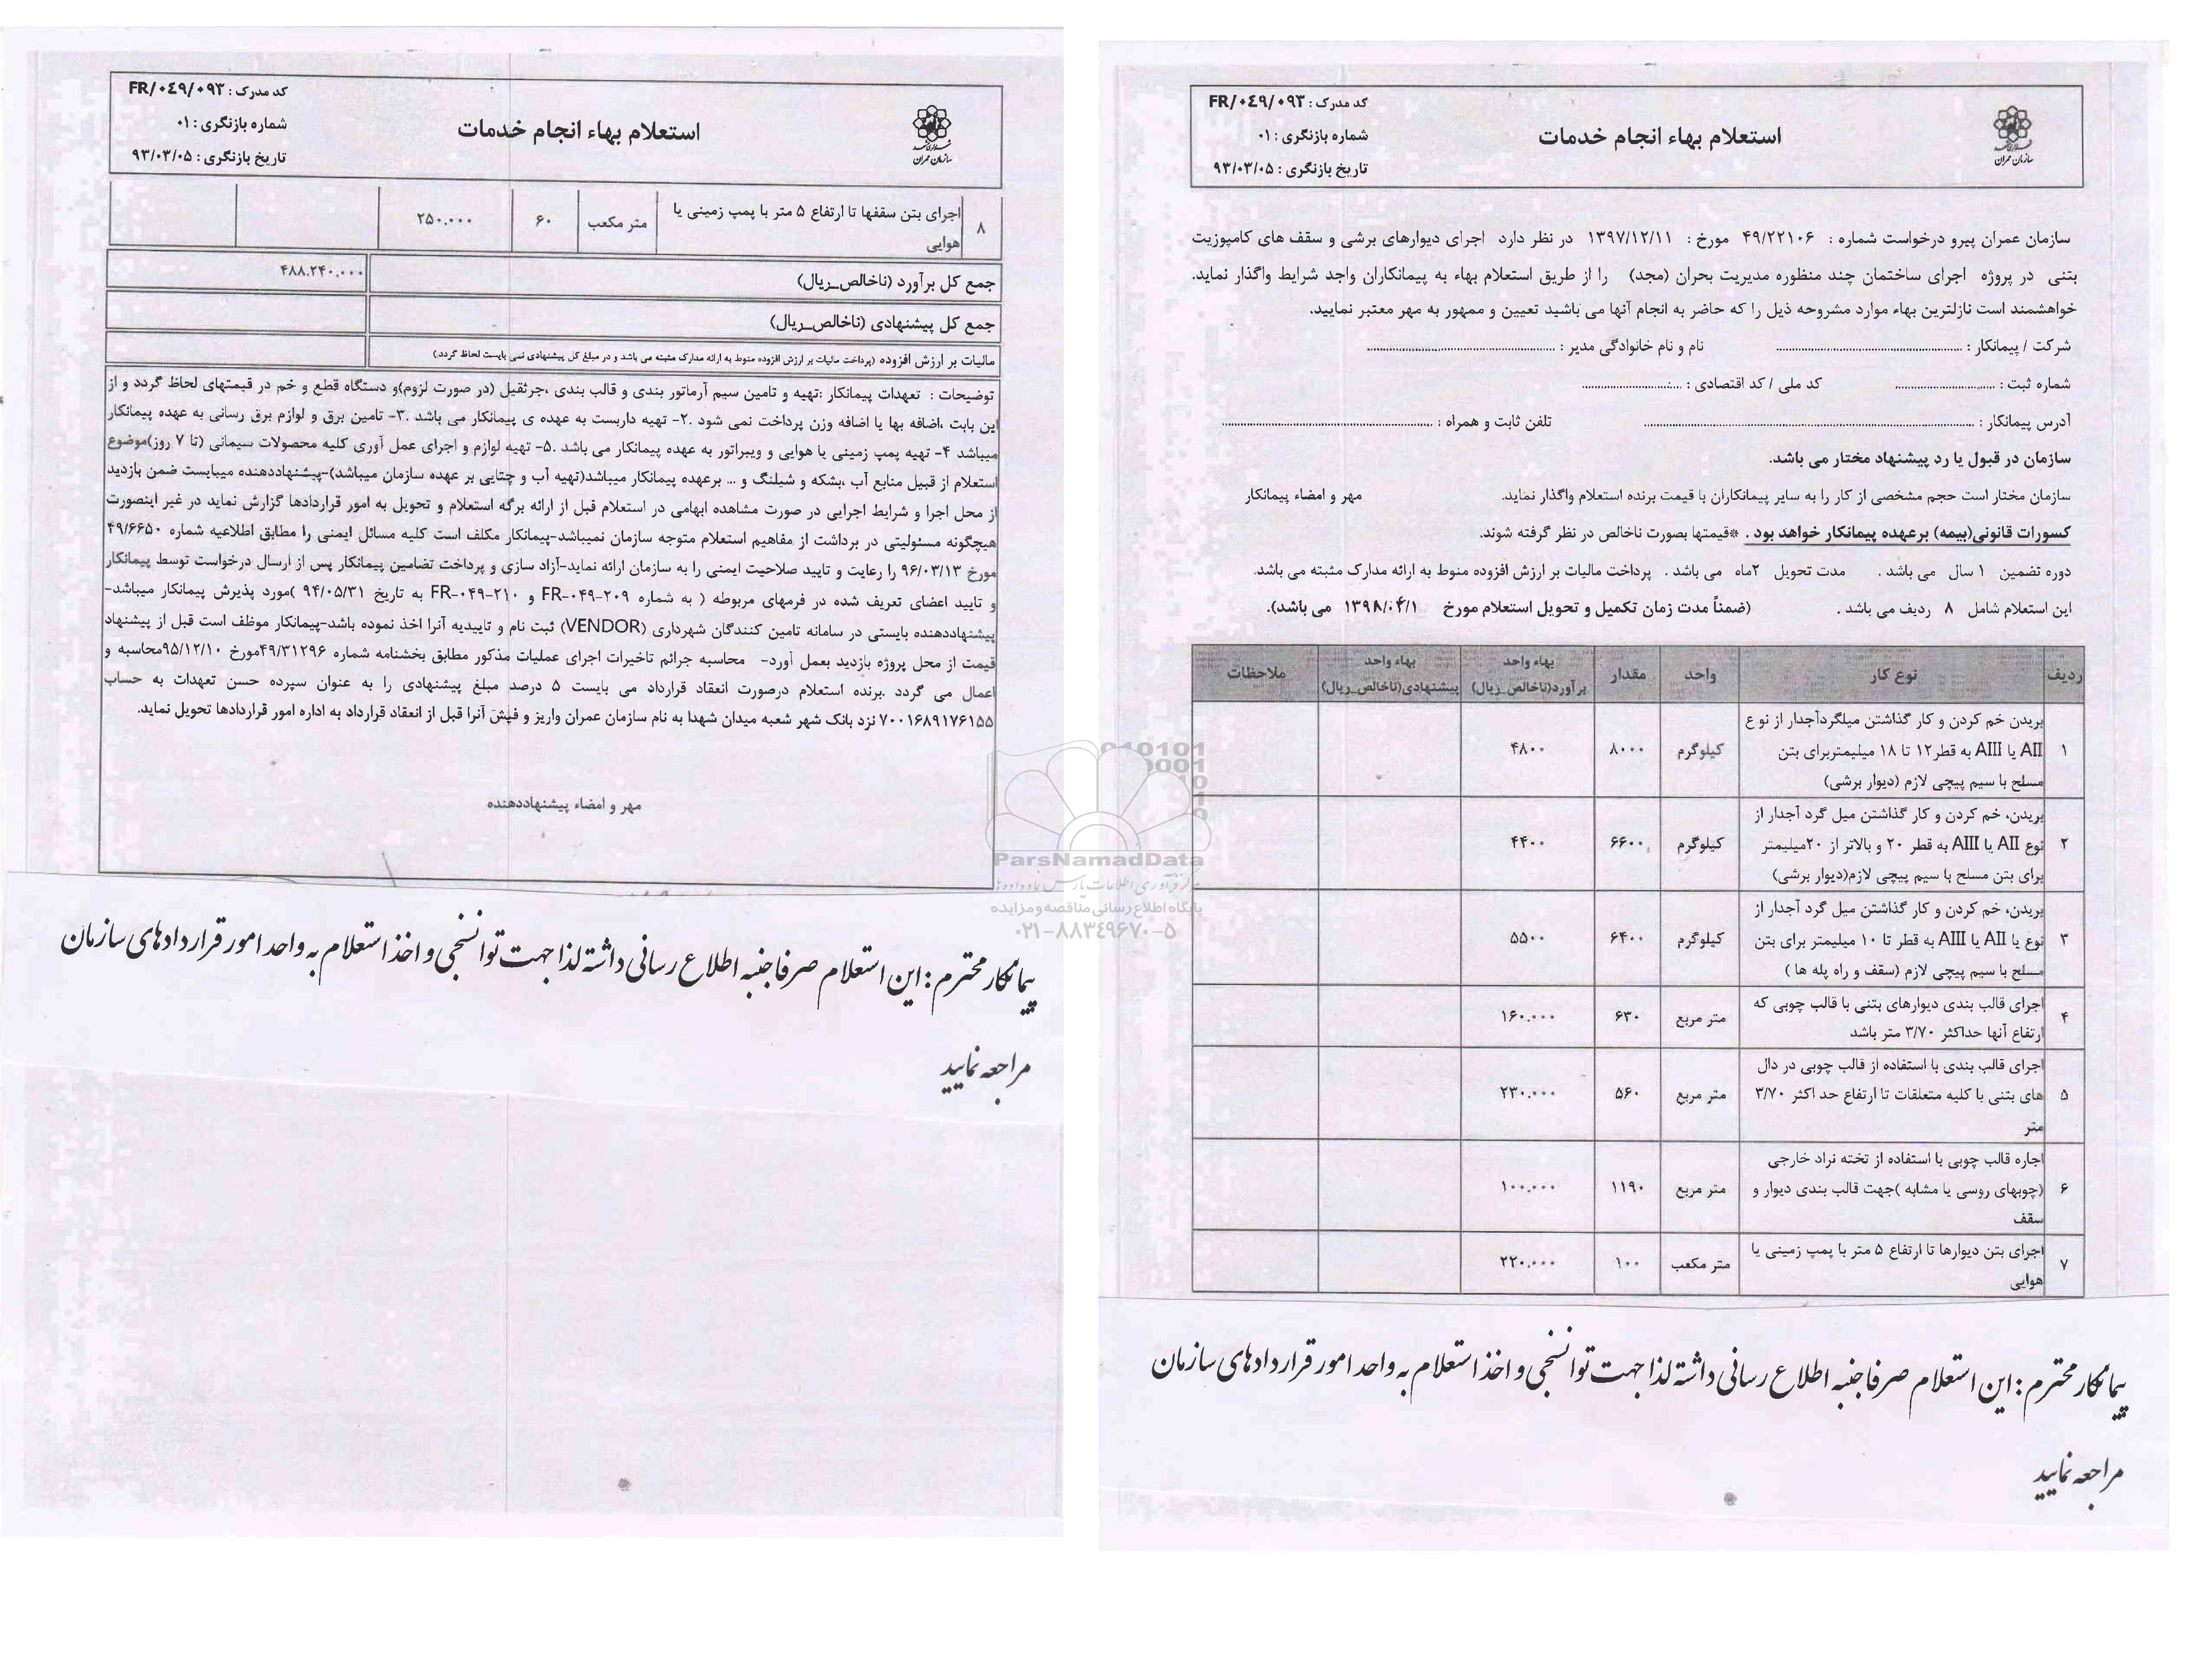 استعلام بهاء انجام خدمات
کد مدرک : FR/۰۴۹/۰۹۳
شماره بازنگری : ۰۱
تاریخ بازنگری : ۹۳/۰۳/۰۵
سازمان عمران
سازمان عمران پیرو درخواست شماره : ۴۹/۲۲۱۰۶ مورخ : ۱۳۹۷/۱۲/۱۱ در نظر دارد اجرای دیوارهای برشی و سقف های کامپوزیت
بتنی در پروژه اجرای ساختمان چند منظوره مدیریت بحران (مجد) را از طریق استعلام بهاء به پیمانکاران واجد شرایط واگذار نماید.
خواهشمند است نازلترین بهاء موارد مشروحه ذیل را که حاضر به انجام آنها می باشید تعیین و ممهور به مهر معتبر نمایید.
شرکت / پیمانکار : نام و نام خانوادگی مدیر :
شماره ثبت : کد ملی / کد اقتصادی :
آدرس پیمانکار : تلفن ثابت و همراه :
سازمان در قبول یا رد پیشنهاد مختار می باشد.
سازمان مختار است حجم مشخصی از کار را به سایر پیمانکاران با قیمت برنده استعلام واگذار نماید. مهر و امضاء پیمانکار
کسورات قانونی(بیمه) برعهده پیمانکار خواهد بود . *قیمتها بصورت ناخالص در نظر گرفته شوند.
دوره تضمین ۱ سال می باشد . مدت تحویل ۲ماه می باشد . پرداخت مالیات بر ارزش افزوده منوط به ارائه مدارک مثبته می باشد.
این استعلام شامل ۸ ردیف می باشد . (ضمناً مدت زمان تکمیل و تحویل استعلام مورخ ۱۳۹۸/۰۴/۱ می باشد).
ردیف نوع کار واحد مقدار بهاء واحد برآورد(ناخالص_ریال) بهاء واحد پیشنهادی(ناخالص_ریال) ملاحظات
۱ بریدن خم کردن و کار گذاشتن میلگردآجدار از نوع
AII یا AIII به قطر۱۲ تا ۱۸ میلیمتربرای بتن کیلوگرم ۸۰۰۰ ۴۸۰۰
مسلح با سیم پیچی لازم (دیوار برشی)
۲ بریدن، خم کردن و کار گذاشتن میل گرد آجدار از
نوع AII یا AIII به قطر ۲۰ و بالاتر از ۲۰میلیمتر کیلوگرم ۶۶۰۰ ۴۴۰۰
برای بتن مسلح با سیم پیچی لازم(دیوار برشی)
۳ بریدن، خم کردن و کار گذاشتن میل گرد آجدار از
نوع یا AII یا AIII به قطر تا ۱۰ میلیمتر برای بتن کیلوگرم ۶۴۰۰ ۵۵۰۰
مسلح با سیم پیچی لازم (سقف و راه پله ها )
۴ اجرای قالب بندی دیوارهای بتنی با قالب چوبی که متر مربع ۶۳۰ ۱۶۰.۰۰۰
ارتفاع آنها حداکثر ۳/۷۰ متر باشد
۵ اجرای قالب بندی با استفاده از قالب چوبی در دال
های بتنی با کلیه متعلقات تا ارتفاع حد اکثر ۳/۷۰ متر مربع ۵۶۰ ۲۳۰.۰۰۰
متر
۶ اجاره قالب چوبی با استفاده از تخته نراد خارجی
(چوبهای روسی یا مشابه )جهت قالب بندی دیوار و متر مربع ۱۱۹۰ ۱۰۰.۰۰۰
سقف
۷ اجرای بتن دیوارها تا ارتفاع ۵ متر با پمپ زمینی یا متر مکعب ۱۰۰ ۲۲۰.۰۰۰
هوایی
پیمانکار محترم : این استعلام صرفا جنبه اطلاع رسانی داشته لذا جهت توانسنجی و اخذ استعلام به واحد امور قراردادهای سازمان
مراجعه نمایید
استعلام بهاء انجام خدمات
کد مدرک : FR/۰۴۹/۰۹۳
شماره بازنگری : ۰۱
تاریخ بازنگری : ۹۳/۰۳/۰۵
سازمان عمران
۸ اجرای بتن سقفها تا ارتفاع ۵ متر با پمپ زمینی یا متر مکعب ۶۰ ۲۵۰.۰۰۰
هوایی
جمع کل برآورد (ناخالص_ریال) ۴۸۸.۲۴۰.۰۰۰
جمع کل پیشنهادی (ناخالص_ریال)
مالیات بر ارزش افزوده (پرداخت مالیات بر ارزش افزوده منوط به ارائه مدارک مثبته می باشد و در مبلغ کل پیشنهادی نمی بایست لحاظ گردد.)
توضیحات : تعهدات پیمانکار :تهیه و تامین سیم آرماتور بندی و قالب بندی ،جرثقیل (در صورت لزوم)و دستگاه قطع و خم در قیمتهای لحاظ گردد و از
این بابت ،اضافه بها یا اضافه وزن پرداخت نمی شود .۲- تهیه داربست به عهده ی پیمانکار می باشد .۳- تامین برق و لوازم برق رسانی به عهده پیمانکار
میباشد ۴- تهیه پمپ زمینی یا هوایی و ویبراتور به عهده پیمانکار می باشد .۵- تهیه لوازم و اجرای عمل آوری کلیه محصولات سیمانی (تا ۷ روز)موضوع
استعلام از قبیل منابع آب ،بشکه و شیلنگ و ... برعهده پیمانکار میباشد(تهیه آب و چتایی بر عهده سازمان میباشد)-پیشنهاددهنده میبایست ضمن بازدید
از محل اجرا و شرایط اجرایی در صورت مشاهده ابهامی در استعلام قبل از ارائه برگه استعلام و تحویل به امور قراردادها گزارش نماید در غیر اینصورت
هیچگونه مسئولیتی در برداشت از مفاهیم استعلام متوجه سازمان نمیباشد-پیمانکار مکلف است کلیه مسائل ایمنی را مطابق اطلاعیه شماره ۴۹/۶۶۵۰
مورخ ۹۶/۰۳/۱۳ را رعایت و تایید صلاحیت ایمنی را به سازمان ارائه نماید-آزاد سازی و پرداخت تضامین پیمانکار پس از ارسال درخواست توسط پیمانکار
و تایید اعضای تعریف شده در فرمهای مربوطه ( به شماره FR-۰۴۹-۲۰۹ و FR-۰۴۹-۲۱۰ به تاریخ ۹۴/۰۵/۳۱ )مورد پذیرش پیمانکار میباشد-
پیشنهاددهنده بایستی در سامانه تامین کنندگان شهرداری (VENDOR) ثبت نام و تاییدیه آنرا اخذ نموده باشد-پیمانکار موظف است قبل از پیشنهاد
قیمت از محل پروژه بازدید بعمل آورد- محاسبه جرائم تاخیرات اجرای عملیات مذکور مطابق بخشنامه شماره ۴۹/۳۱۲۹۶مورخ ۹۵/۱۲/۱۰محاسبه و
اعمال می گردد .برنده استعلام درصورت انعقاد قرارداد می بایست ۵ درصد مبلغ پیشنهادی را به عنوان سپرده حسن تعهدات به حساب
۷۰۰۱۶۸۹۱۷۶۱۵۵ نزد بانک شهر شعبه میدان شهدا به نام سازمان عمران واریز و فیش آنرا قبل از انعقاد قرارداد به اداره امور قراردادها تحویل نماید.
مهر و امضاء پیشنهاددهنده
پیمانکار محترم : این استعلام صرفا جنبه اطلاع رسانی داشته لذا جهت توانسنجی و اخذ استعلام به واحد امور قراردادهای سازمان
مراجعه نمایید
ParsNamadData
پایگاه اطلاع رسانی مناقصه و مزایده
۰۲۱-۸۸۳۴۹۶۷۰-۵